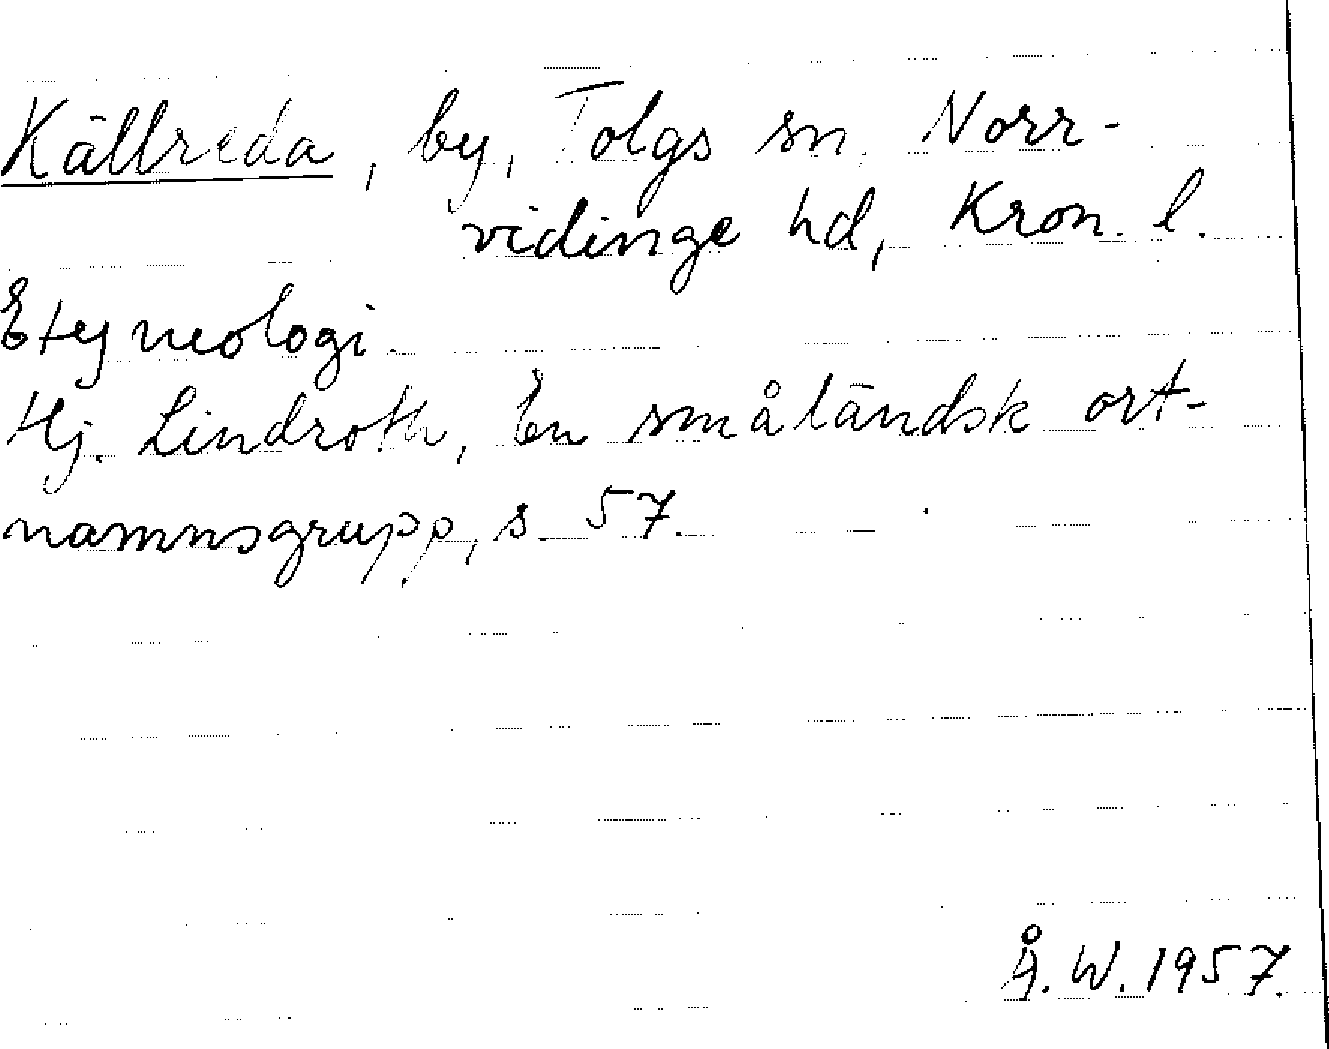 Källreda, by, Tolgs sn, Norr-
vidinge hd, Kron. l.
Etymologi.
Hj. Lindroth, En småländsk ort-
namnsgrupp, s. 57.
Å. W. 1957.